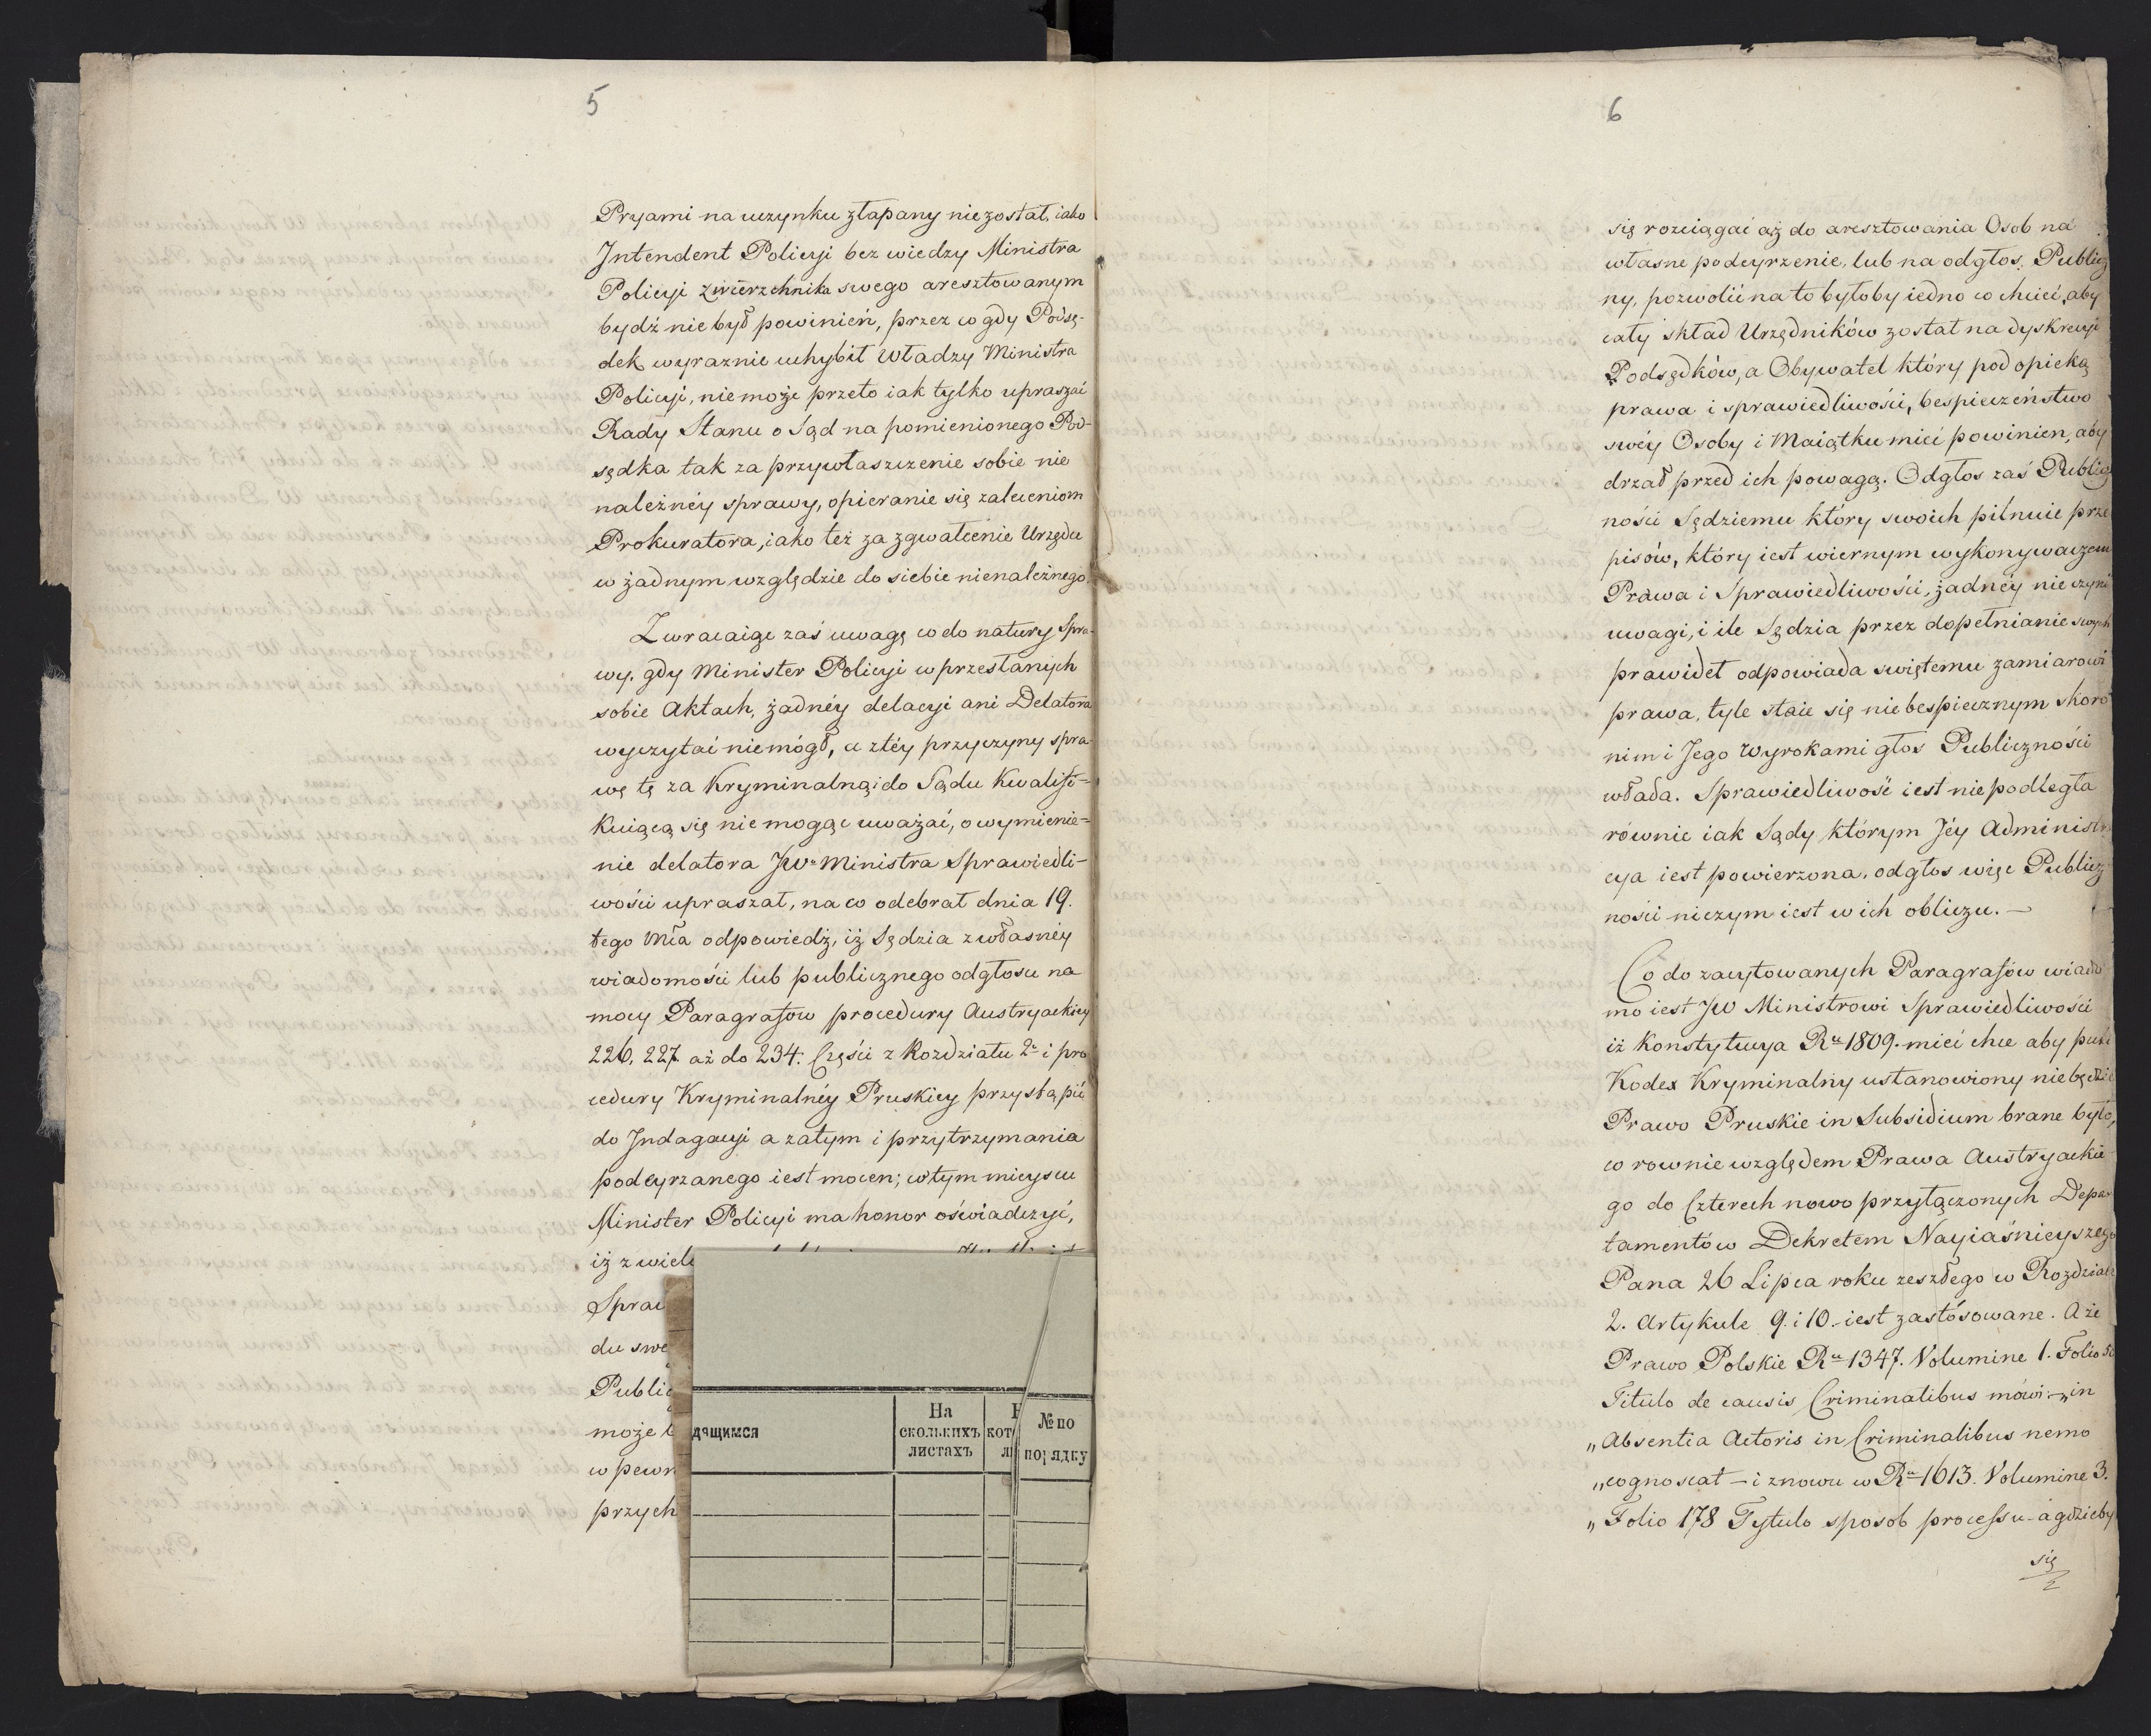 5
Pryami na uczynku złapany nie został, iako
Intendent Policyi bez wiedzy Ministra
Policyi zwierzchnika swego aresztowanym
bydź nie był powinien, przez co gdy Podsę-
dek wyraznie uchybił Władzy Ministra
Policyi, niemoże przeto iak tylko upraszać
Rady Stanu o Sąd na pomienionego Pod-
sędka tak za przywłaszczenie sobie nie
należnéy sprawy, opieranie się zaleceniom
Prokuratora, iako też za zgwałcenie Urzędu
w żadnym względzie do siebie nienależnego.
Zwracaiąc zaś uwagę co do natury Spra-
wy, gdy Minister Policyi w przesłanych
sobie Aktach, żadnéy delacyi ani Delatora
wyczytać niemógł, a ztéy przyczyny spra-
wę tę za Kryminalną i do Sądu Kwalifi=
kuiącą się nie mogąc uważać, o wymienie=
nie delatora JW. Ministra Sprawiedli-
wości upraszał, na co odebrał dnia 19.
tego Mca odpowiedz, iż Sędzia z własnéy
wiadomości lub publicznego odgłosu na
mocy Paragrafow procedury Austryackiey
226, 227. aż do 234. Części z Rozdziału 2. i pro
cedury Kryminalnéy Pruskiey przystąpić
do Indagacyi a zatym i przytrzymania
podeyrzanego iest mocen; w tym mieyscu
Minister Policyi ma honor oświadczyć,
iż z wiel
Spraw
du swe
Public
może
w pewn
przych
дящимся
На
сколькихъ
листахъ
кот
л
№ по
порядку
6
się rozciągać aż do aresztowania Osob na
własne podeyrzenie, lub na odgłos Publicz
ny, pozwolić na to byłoby iedno co chcieć, aby
cały skład Urzędników został na dyskrecyi
Podsędków, a Obywatel który pod opieką
prawa i sprawiedliwości, bespieczeństwo
swéy Osoby i Maiątku mieć powinien, aby
drzał przed ich powagą. Odgłos zaś Publicz
ności Sędziemu który swoich pilnuie prze
pisów, który iest wiernym wykonywaczem
Prawa i Sprawiedliwości, żadnéy nie czyni
uwagi, i ile Sędzia przez dopełnianie swych
prawideł odpowiada swiętemu zamiarowi
prawa, tyle staie się niebespiecznym skoro
nim i Jego Wyrokami głos Publiczności
włada. Sprawiedliwość iest niepodległa
równie iak Sądy którym Jéy Administr
cya iest powierzona, odgłos więc Publicz
ności niczym iest w ich obliczu. —
Co do zacytowanych Paragrafów wiado
mo iest JW Ministrowi Sprawiedliwości
iż Konstytucya Ru 1809. mieć chce aby puki
Kodex Kryminalny ustanowiony nie będzie
Prawo Pruskie in Subsidium brane było,
co rownie względem Prawa Austryackie
go do Czterech nowo przyłączonych Depar
tamentów Dekretem Nayiaśnieyszego
Pana 26 Lipca roku zeszłego w Rozdziale
2. Artykule 9. i 10. iest zastósowane. A że
Prawo Polskie Ru 1347. Volumine 1. Folio
Titulo de causis Criminalibus mówi: „in
„Absentia Actoris in Criminalibus nemo
„cognoscat — i znowu w Ru 1613. Volumine 3.
„Folio 178 Tytulo sposob processu - a gdzieby
się